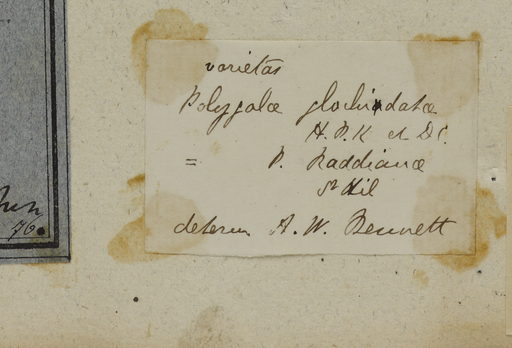 varietas
Polygalæ glochidatæ
H. B. K et DC.
= P. Raddianæ
St Hil
determ A. W. Bennett
76